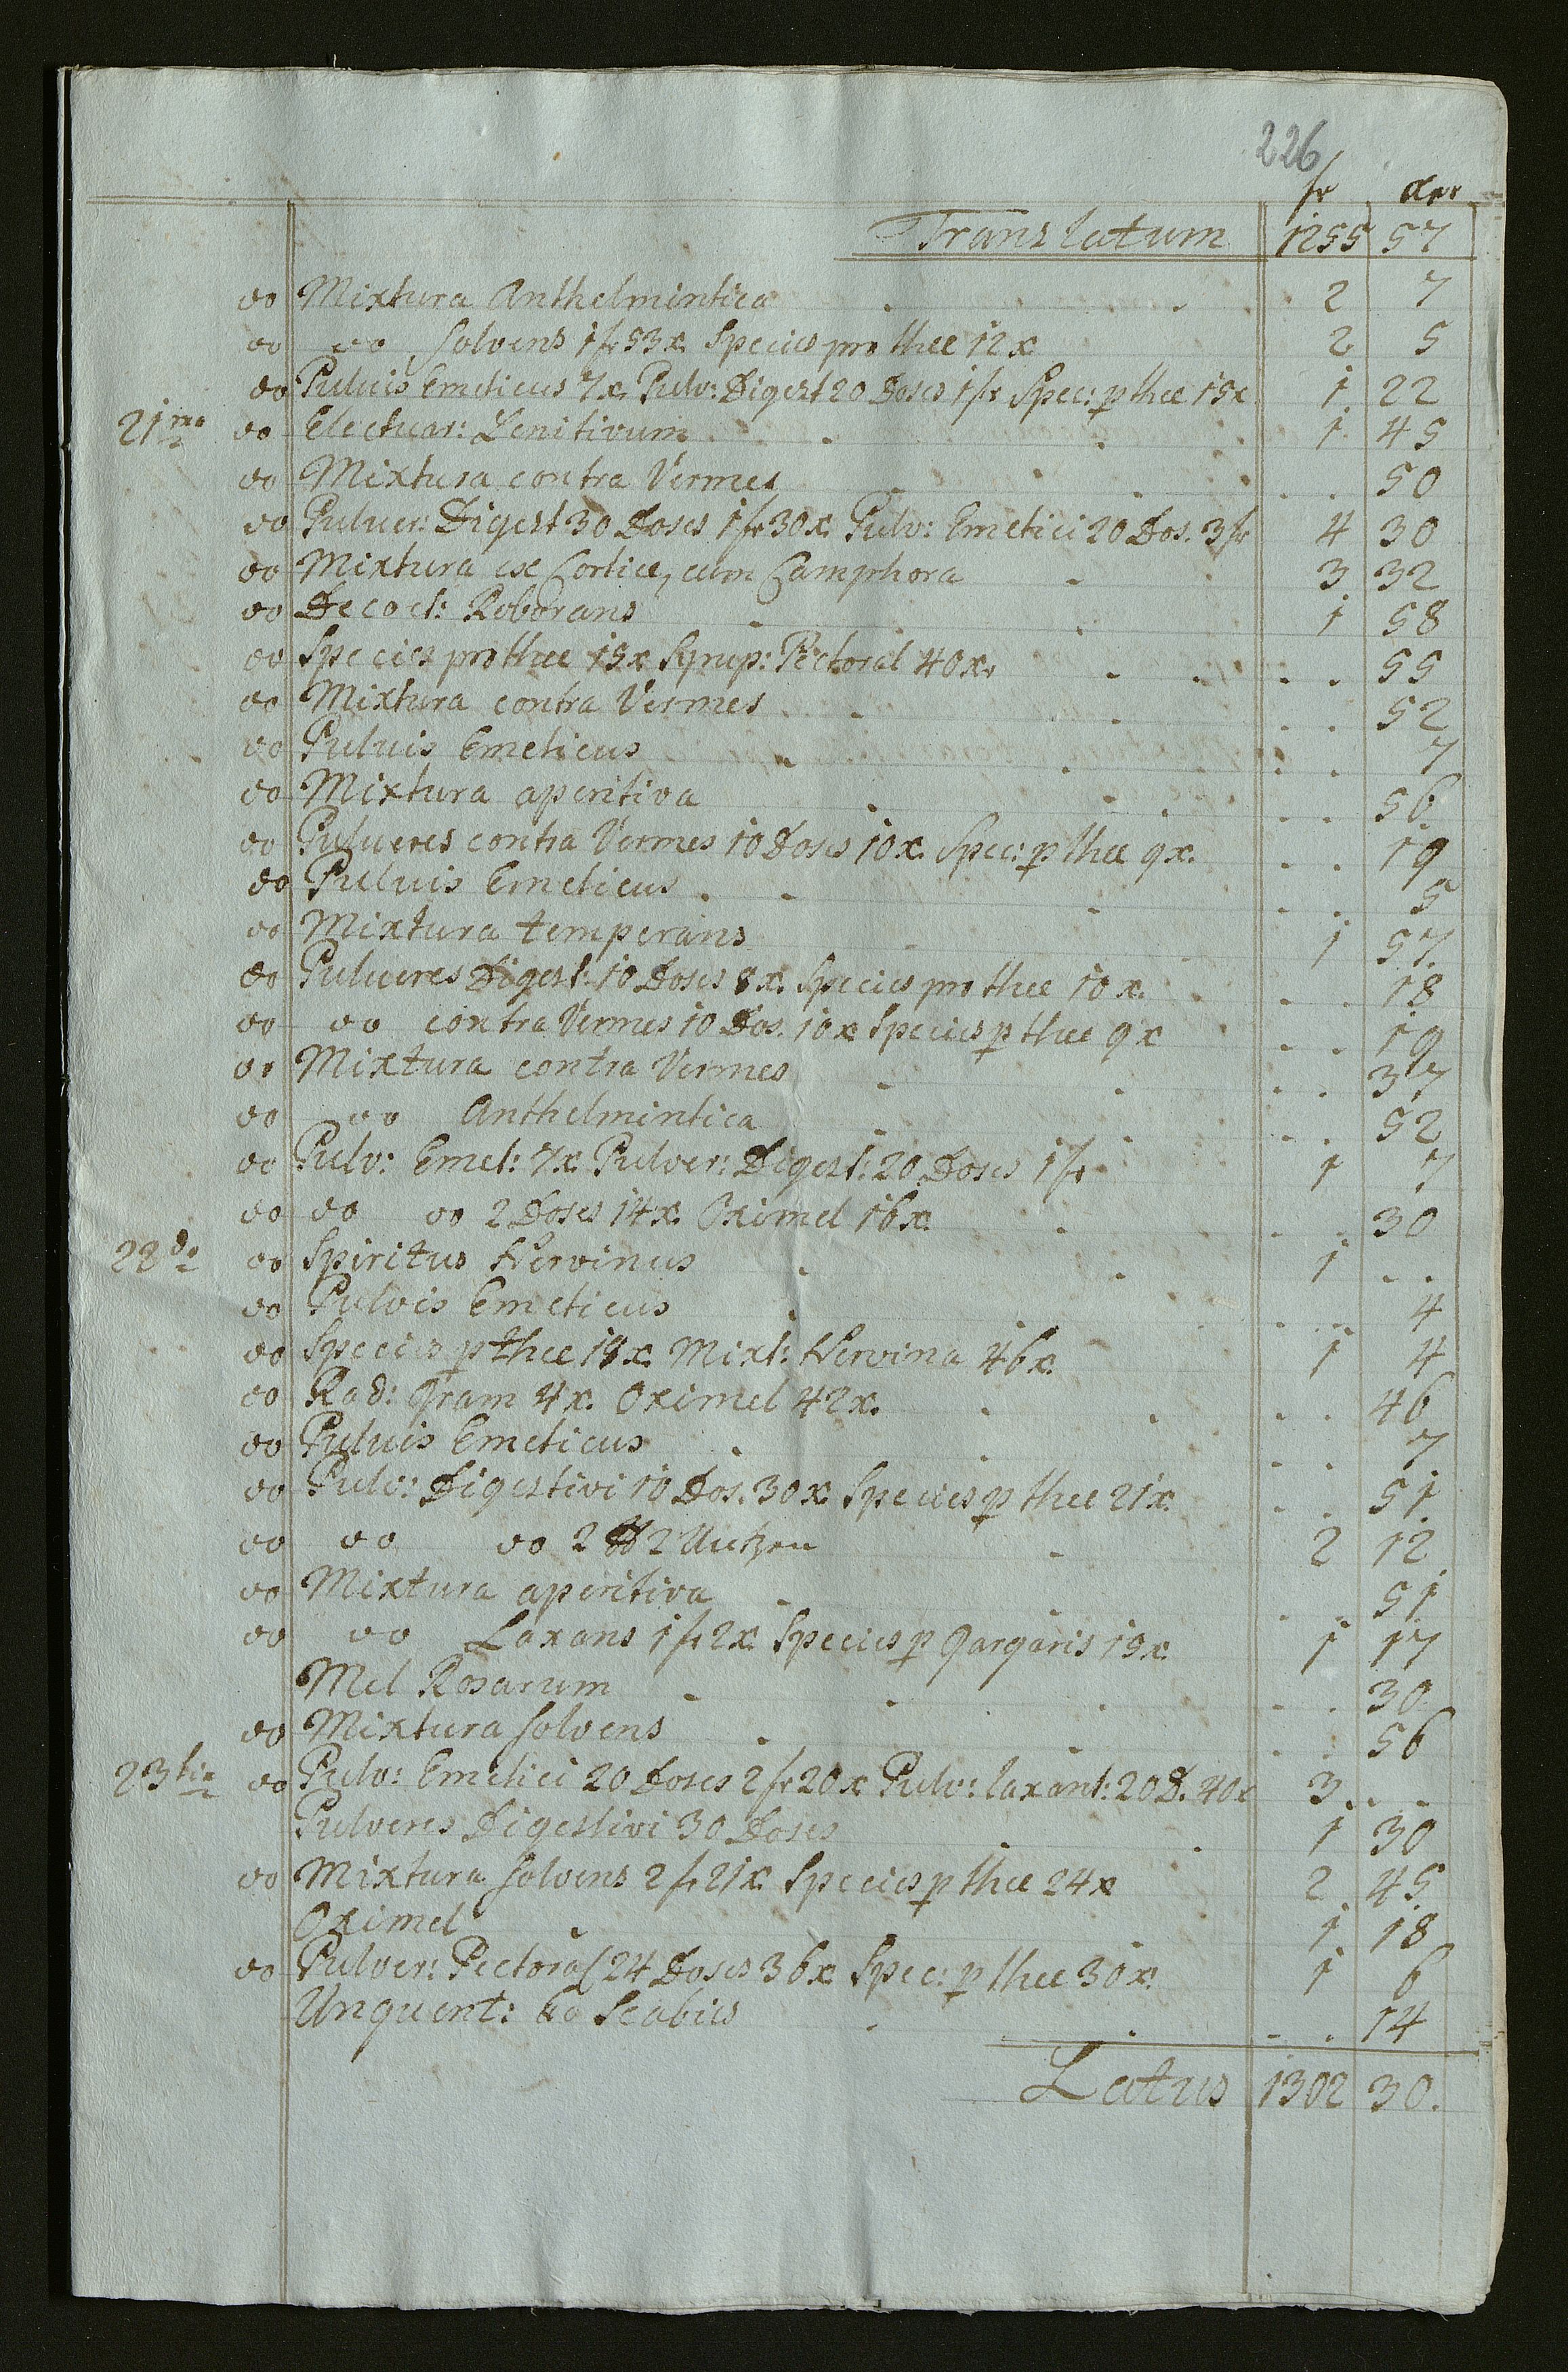 226
fr xr
Translatum 1255 57
do Mixtura Anthelmintica 2 7
do do solvens 1 fr 53 x. Species pro thee 12 x 2 5
do Pulvis Emeticus 7 x. Pulv: Digest 20 Doses 1 fr Spec: p thee 15 x 1 22
21ma do Electuar: Lenitivum 1 45
do Mixtura contra Vermes 50
do Pulver: Digest 30 Doses 1 fr 30 x. Pulv: Emetici 20 Dos. 3 fr 4 30
do Mixtura ex Cortice, cum Camphora 3 32
do Decoct: Roborans 1 58
do Species pro thee 15 x Syrup: Pectoral 40 xr 55
do Mixtura contra Vermes 52
do Pulvis Emeticus 7
do Mixtura aperitiva 56
do Pulveres contra Vermes 10 Doses 10 x. Spec: p thee 9 x. 19
do Pulvis Emeticus 5
do Mixtura temperans 1 57
do Pulveres Digest: 10 Doses 8 x. Species pro thee 10 x. 18
do do contra Vermes 10 Dos. 10 x Species p thee 9 x 19
do Mixtura contra Vermes 37
do do Anthelmintica 52
do Pulv: Emet: 7 x. Pulver: Digest: 20 Doses 1 fr 1 7
do do do 2 Doses 14 x. Oximel 16 x. 30
22da do Spiritus Nervinus 1
do Pulvis Emeticus 4
do Species p thee 18 x. Mixt: Nervina 46 x. 1 4
do Rad: Gram 4 x. Oximel 42 x. 46
do Pulvis Emeticus 7
do Pulv: Digestivi 10 Dos. 30 x. Species p thee 21 x. 51
do do do 2 2 2 12
do Mixtura aperitiva 51
do do Laxans 1 fr 2 x. Species p gargaris 15 x 1 17
Mel Rosarum 30
do Mixtura solvens 56
23tia do Pulv: Emetici 20 Doses 2 fr 20 x Pulv: laxant: 20 D. 40 x 3
Pulveres Digestivi 30 Doses 1 30
do Mixtura solvens 2 fr 21 x. Species p thee 24 x 2 45
Oximel 1 18
do Pulver: Pectoral 24 Doses 36 x. Spec: p thee 30 x. 1 6
Unguent: Scabies 14
Latus 1302 30.